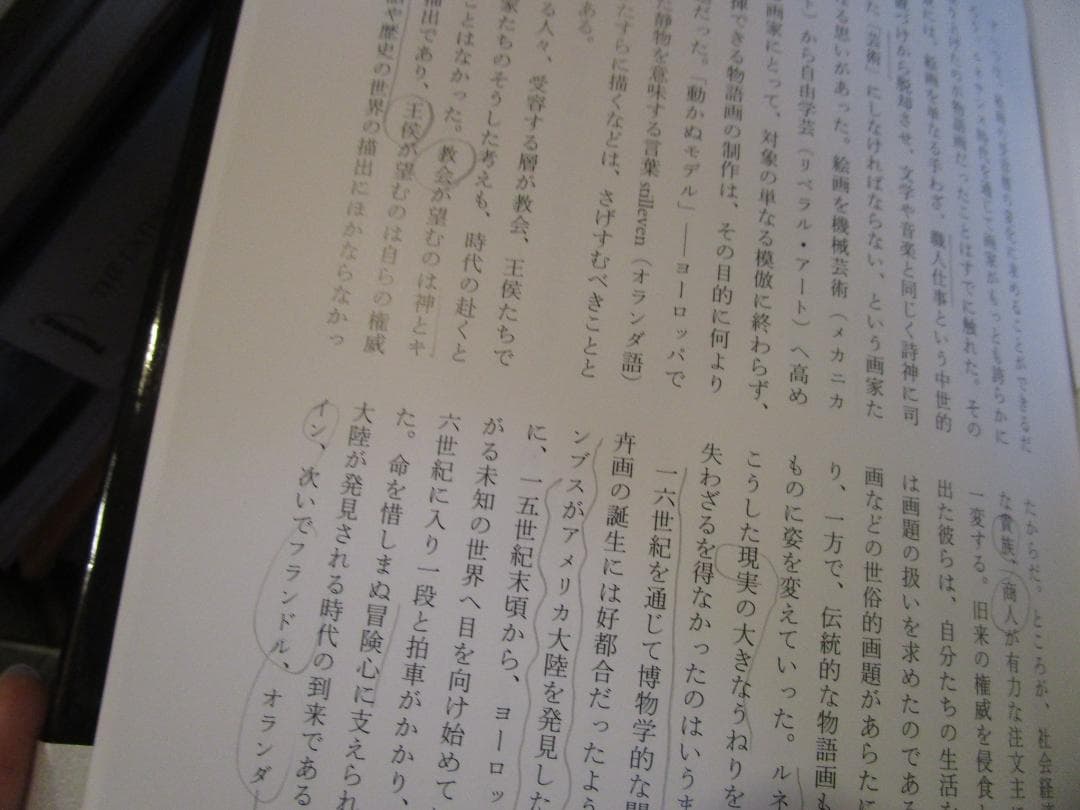 ルネサンス時代を通じて画家がもっとも誇らかに
とりあげたのが物語画だったことはすでに触れた。その
には、絵画を単なる手わざ、職人仕事という中世的
置づけから脱却させ、文学や音楽と同じく詩神に司
た「芸術」にしなければならない、という画家た
なる思いがあった。絵画を機械芸術（メカニカ
ト）から自由学芸（リベラル・アート）へ高め
画家にとって、対象の単なる模倣に終わらず、
揮できる物語画の制作は、その目的に何より
だった。「動かぬモデル」――ヨーロッパで
た静物を意味する言葉 stilleven（オランダ語）
たすらに描くなどは、さげすむべきことと
ある。
る人々、受容する層が教会、王侯たちで
家たちのそうした考えも、時代の赴くと
ことはなかった。教会が望むのは神とキ
描出であり、王侯が望むのは自らの権威
や歴史の世界の描出にほかならなかっ
たからだ。ところが、社会経済
な貴族、商人が有力な注文主
一変する。旧来の権威を侵食
出た彼らは、自分たちの生活
は画題の扱いを求めたのであ
画などの世俗的画題があらたに
り、一方で、伝統的な物語画も
ものに姿を変えていった。ルネ
こうした現実の大きなうねりを
失わざるを得なかったのはいうま
一六世紀を通じて博物学的な関
卉画の誕生には好都合だったよう
ンブスがアメリカ大陸を発見した
に、一五世紀末頃から、ヨーロッ
がる未知の世界へ目を向け始めて
六世紀に入り一段と拍車がかかり、
た。命を惜しまぬ冒険心に支えられ
大陸が発見される時代の到来である
イン、次いでフランドル、オランダ